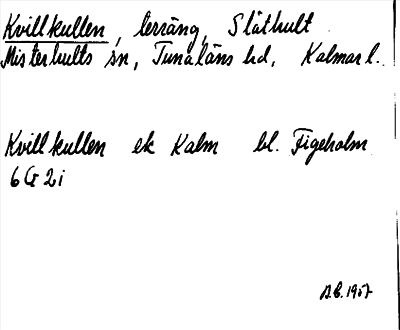 Kvillkullen, terräng, Släthult
Misterhults sn, Tunaläns hd, Kalmar l.
Kvillkullen ek Kalm bl. Figeholm
6 G 2 i
A.E. 1957